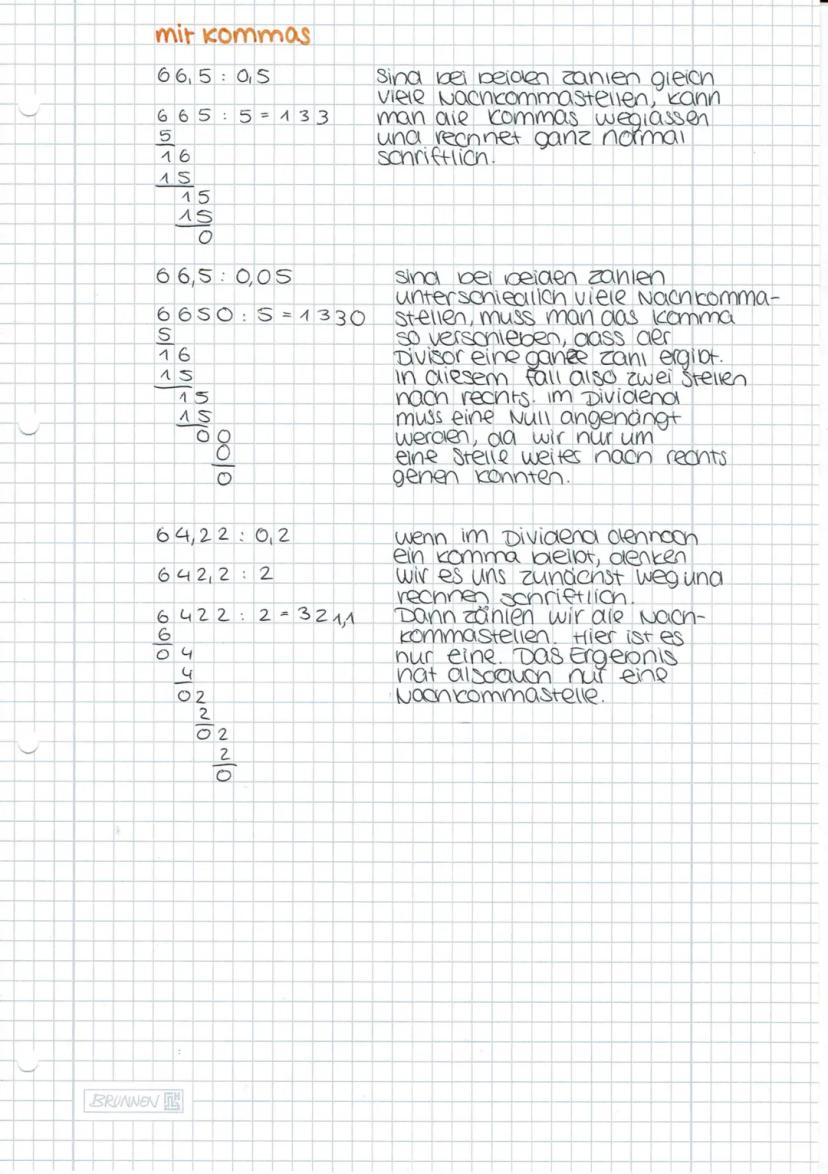 mit Kommas
66,5 : 0,5
665 : 5 = 133
5
16
15
15
15
0
Sind bei beiden Zahlen gleich
viele Nachkommastellen, kann
man die Kommas weglassen
und rechnet ganz normal
schriftlich.
66,5 : 0,05
6650 : 5 = 1330
5
16
15
15
15
00
0
0
Sind bei beiden Zahlen
unterschiedlich viele Nachkomma-
stellen, muss man das Komma
so verschieben, dass der
Divisor eine ganze Zahl ergibt.
In diesem Fall also zwei Stellen
nach rechts. Im Dividend
muss eine Null angehängt
werden, da wir nur um
eine Stelle weiter nach rechts
gehen konnten.
64,22 : 0,2
642,2 : 2
6422 : 2 = 321,1
6
04
4
02
2
02
2
0
Wenn im Dividend dennoch
ein Komma bleibt, denken
wir es uns zunächst weg und
rechnen schriftlich.
Dann zählen wir die Nach-
kommastellen. Hier ist es
nur eine. Das Ergebnis
hat also auch nur eine
Nachkommastelle.
BRUNNEN